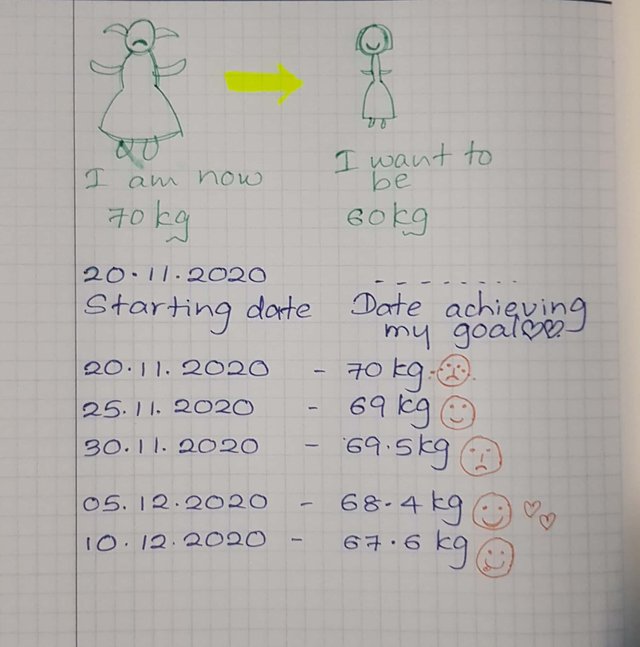 I am now
70 kg
I want to
be
60kg
20.11.2020
Starting date
- - - - - - - -
Date achieving
my goal♡♡
20.11.2020 - 70 kg
25.11.2020 - 69 kg
30.11.2020 - 69.5kg
05.12.2020 - 68.4 kg
10.12.2020 - 67.6 kg